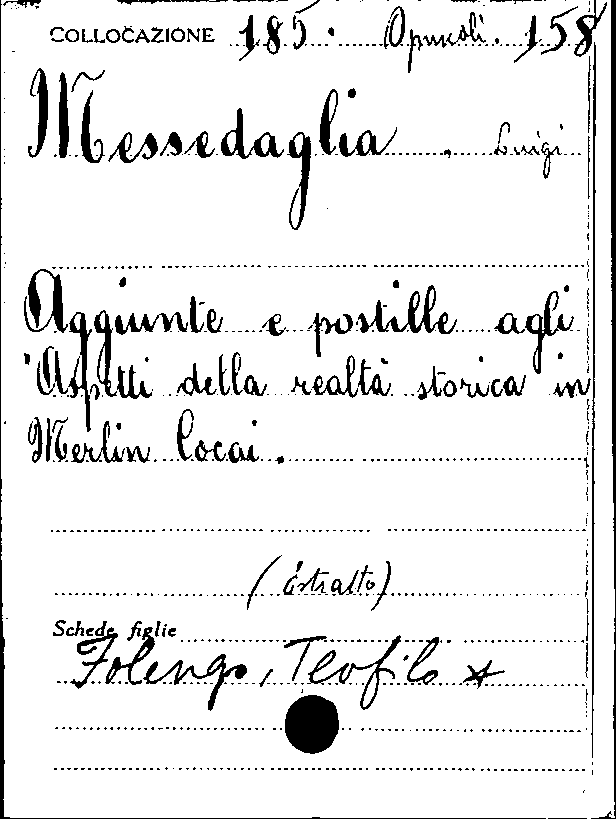 COLLOCAZIONE 185. Opuscoli. 158
Messedaglia. Luigi
Aggiunte e postille agli
"Aspetti della realtà storica in
Merlin Cocai.
(Estratto)
Schede figlie
Folengo, Teofilo *